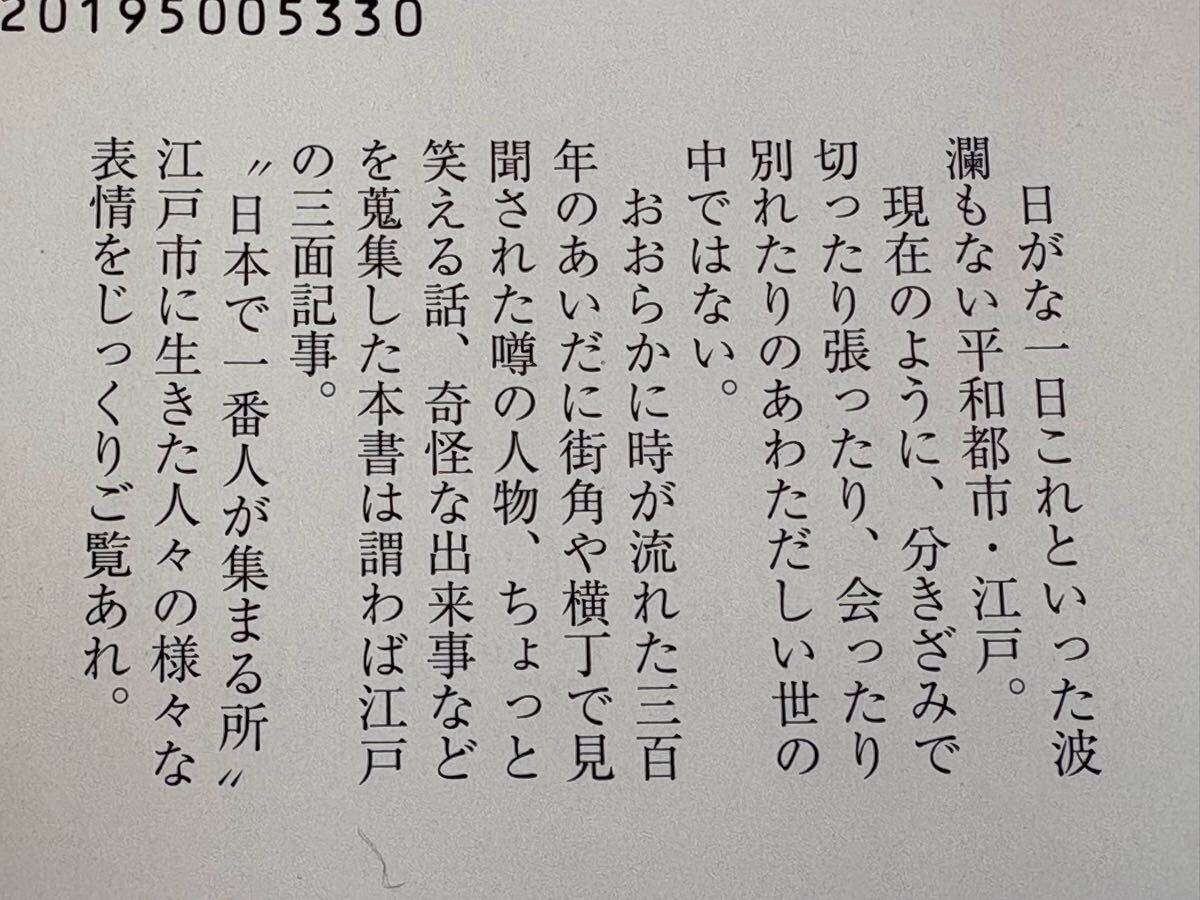 20195005330
日がな一日これといった波
瀾もない平和都市・江戸。
現在のように、分きざみで
切ったり張ったり、会ったり
別れたりのあわただしい世の
中ではない。
おおらかに時が流れた三百
年のあいだに街角や横丁で見
聞された噂の人物、ちょっと
笑える話、奇怪な出来事など
を蒐集した本書は謂わば江戸
の三面記事。
〝日本で一番人が集まる所〟
江戸市に生きた人々の様々な
表情をじっくりご覧あれ。